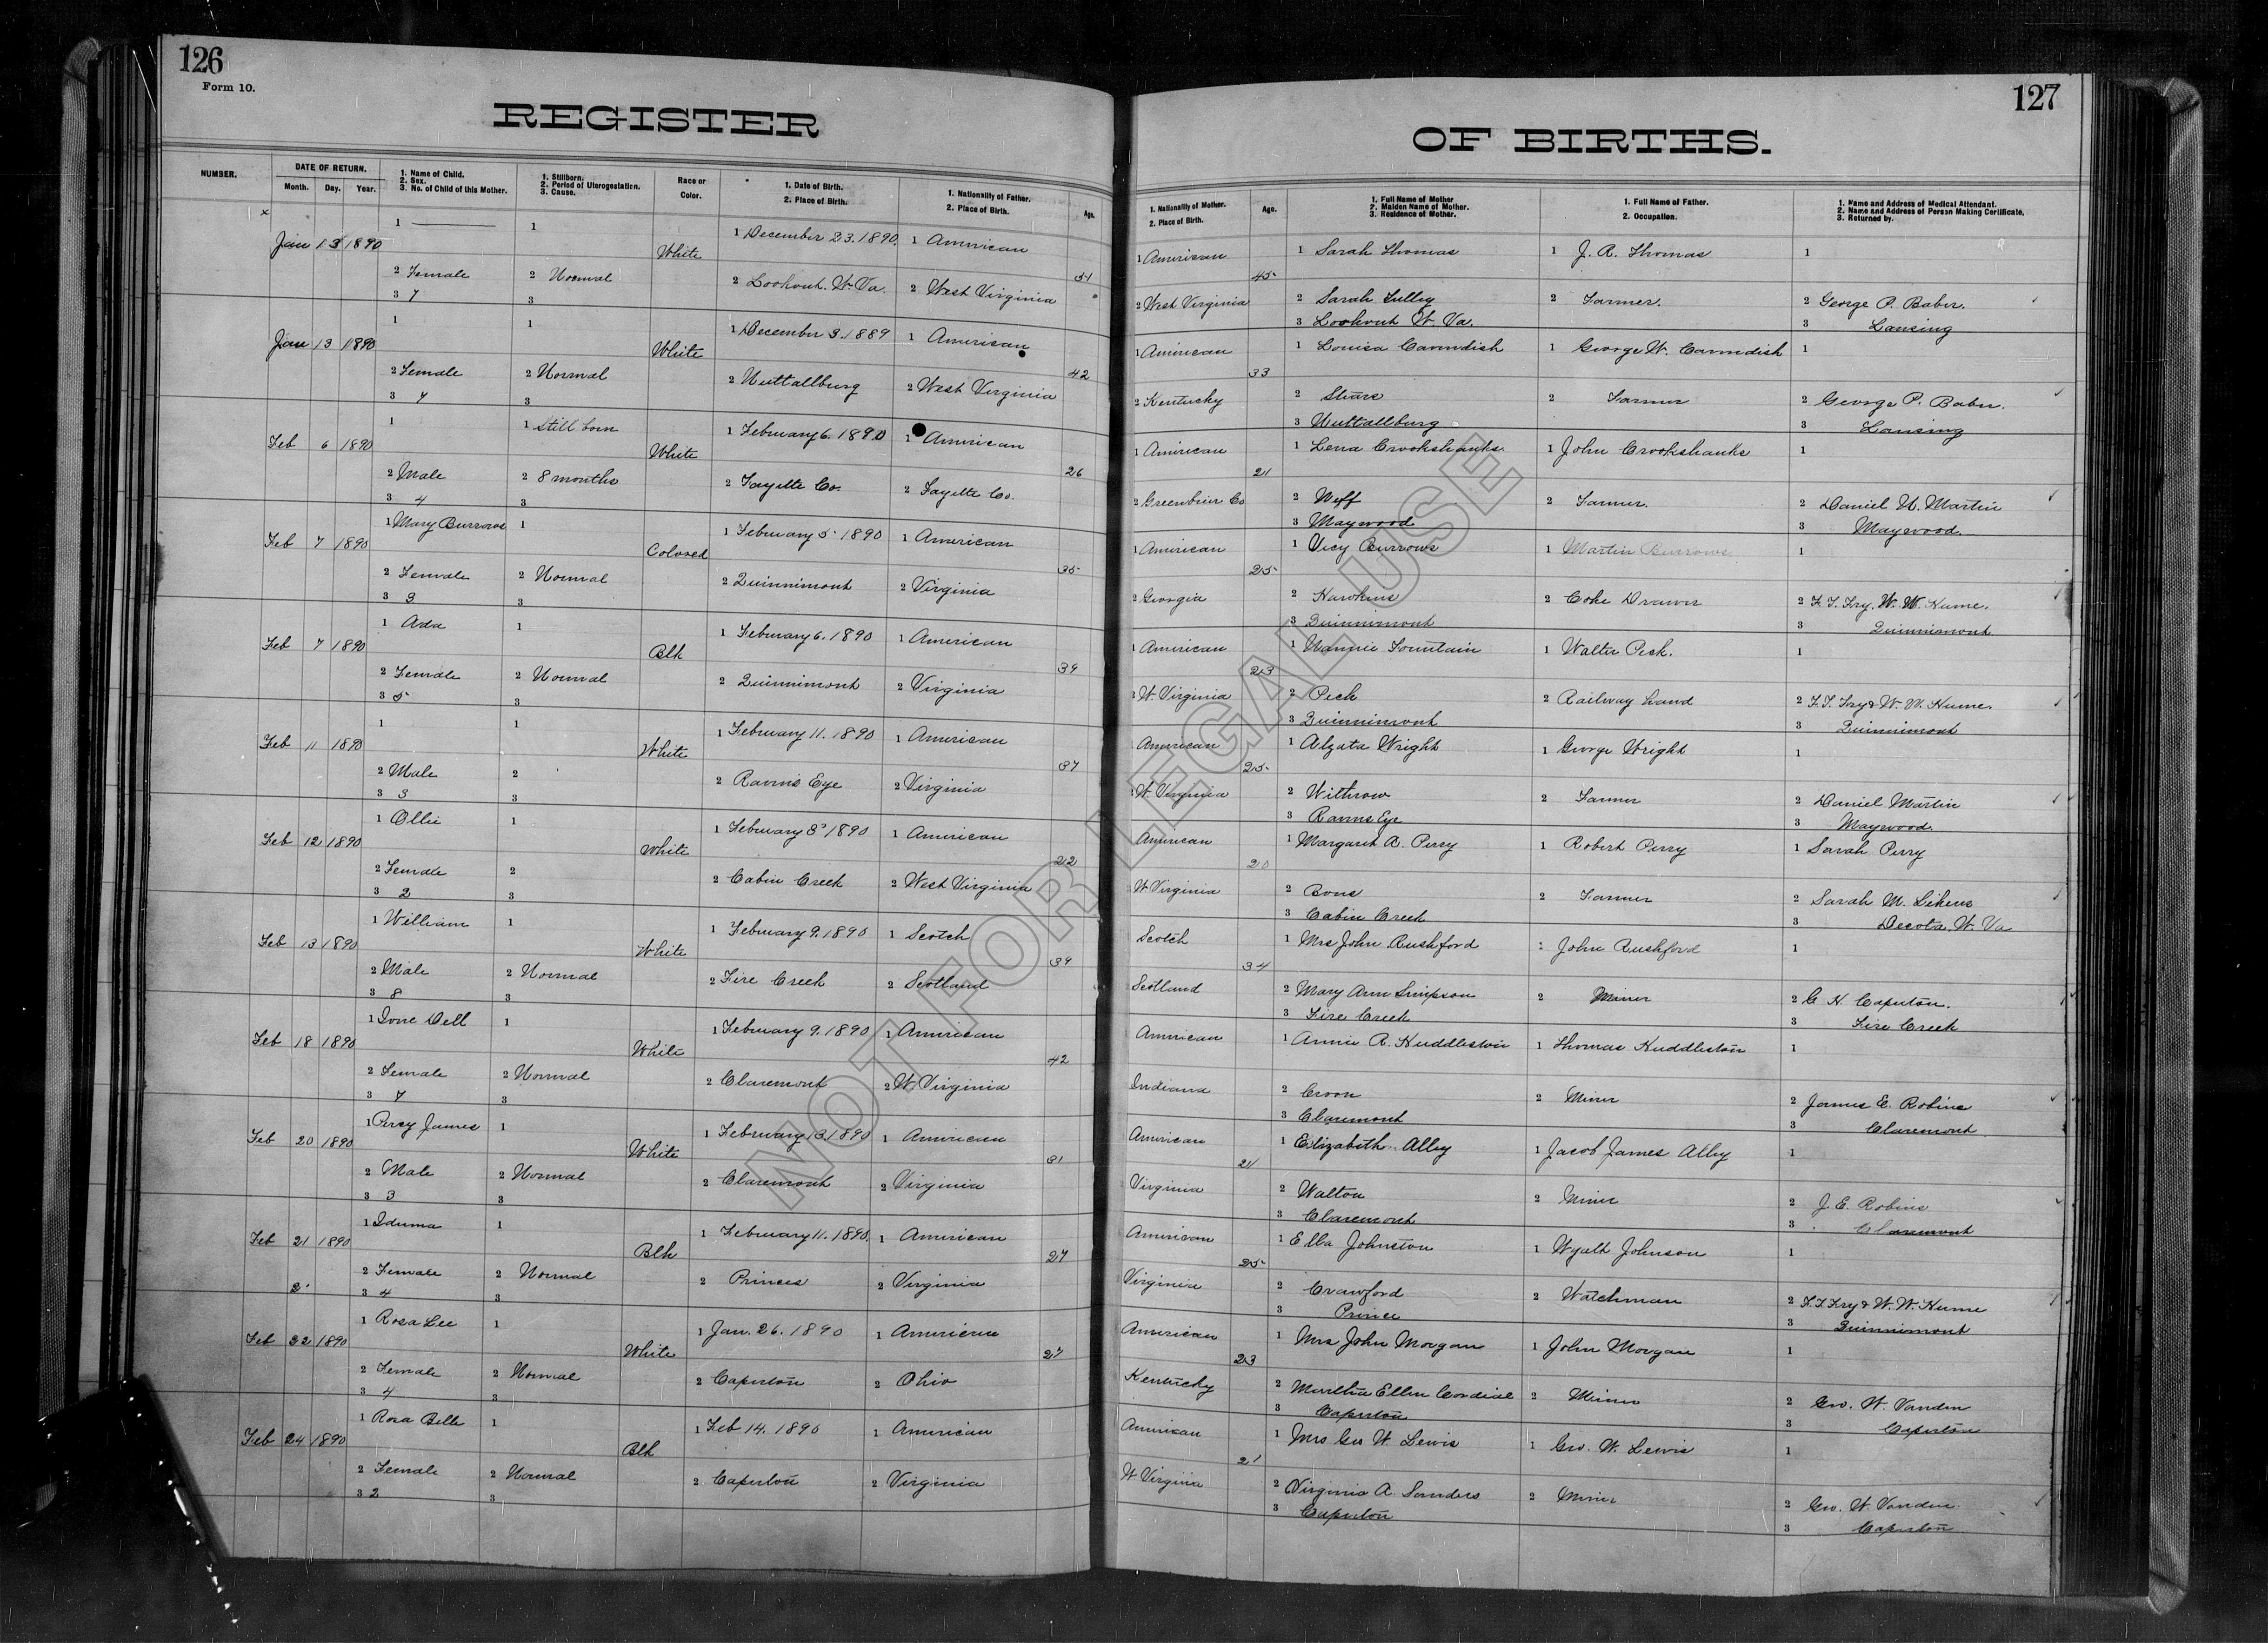 126
Form 10.
REGISTER
NUMBER.
DATE OF RETURN.
Month. Day. Year.
1. Name of Child.
2. Sex.
3. No. of Child of this Mother.
1. Stillborn.
2. Period of Uterogestation.
3. Cause.
Race or
Color.
1. Date of Birth.
2. Place of Birth.
1. Nationality of Father.
2. Place of Birth.
Age.
x
Jan 13 1890 1 1 White 1 December 23. 1890. 1 American 51
2 Female 2 Normal 2 Lookout. W. Va. 2 West Virginia
3 7 3
Jan 13 1890 1 1 White 1 December 3. 1889 1 American 42
2 Female 2 Normal 2 Nuttallburg 2 West Virginia
3 7 3
Feb 6 1890 1 1 Still born White 1 February 6. 1890 1 American 26
2 Male 2 8 months 2 Fayette Co. 2 Fayette Co.
3 4 3
Feb 7 1890 1 Mary Burrows 1 Colored 1 February 5 1890 1 American 35
2 Female 2 Normal 2 Quinnimont 2 Virginia
3 3 3
Feb 7 1890 1 Ada 1 Blk 1 February 6. 1890 1 American 39
2 Female 2 Normal 2 Quinnimont 2 Virginia
3 5 3
Feb 11 1890 1 1 White 1 February 11. 1890 1 American 37
2 Male 2 2 Ravens Eye 2 Virginia
3 3 3
Feb 12 1890 1 Ollie 1 White 1 February 3 1890 1 American 22
2 Female 2 2 Cabin Creek 2 West Virginia
3 2 3
Feb 13 1890 1 William 1 White 1 February 9. 1890 1 Scotch 39
2 Male 2 Normal 2 Fire Creek 2 Scotland
3 8 3
Feb 18 1890 1 Ione Dell 1 White 1 February 9. 1890 1 American 42
2 Female 2 Normal 2 Claremont 2 W. Virginia
3 7 3
Feb 20 1890 1 Percy James 1 White 1 February 13. 1890 1 American 31
2 Male 2 Normal 2 Claremont 2 Virginia
3 3 3
Feb 21 1890 1 Iduma 1 Blk 1 February 11. 1890. 1 American 27
2 Female 2 Normal 2 Princes 2 Virginia
3 4 3
Feb 22 1890 1 Rosa Lee 1 White 1 Jan. 26. 1890 1 American 27
2 Female 2 Normal 2 Caperton 2 Ohio
3 4 3
Feb 24 1890 1 Rosa Belle 1 Blk 1 Feb 14. 1890 1 American
2 Female 2 Normal 2 Caperton 2 Virginia
3 2 3
127
OF BIRTHS.
1. Nationality of Mother.
2. Place of Birth.
Age.
1. Full Name of Mother
2. Maiden Name of Mother.
3. Residence of Mother.
1. Full Name of Father.
2. Occupation.
1. Name and Address of Medical Attendant.
2. Name and Address of Person Making Certificate.
3. Returned by.
1 American 45 1 Sarah Thomas 1 J. R. Thomas 1
2 West Virginia 2 Sarah Tulley 2 Farmer. 2 George P. Baber.
3 Lookout W. Va. 3 Lansing
1 American 33 1 Louisa Cavendish 1 George W. Cavendish 1
2 Kentucky 2 2 Farmer 2 George P. Baber.
3 Nuttallburg 3 Lansing
1 American 21 1 Lena Crookshanks 1 John Crookshanks 1
2 Greenbrier Co 2 Neff 2 Farmer. 2 Daniel N. Martin
3 Maywood 3 Maywood.
1 American 25 1 Vicy Burrows 1 Martin Burrows 1
2 Georgia 2 Hawkins 2 Coke Drawer 2 F. F. Fry. W. W. Hume.
3 Quinnimont 3 Quinnimont
1 American 23 1 Nannie Fountain 1 Walter Peck. 1
2 W. Virginia 2 Peck 2 Railway hand 2 F. F. Fry & W. W. Hume.
3 Quinnimont 3 Quinnimont
American 25 1 Alzata Wright 1 George Wright 1
2 W. Virginia 2 Withrow 2 Farmer 2 Daniel Martin
3 Ravens Eye 3 Maywood.
American 20 1 Margaret A. Perry 1 Robert Perry 1 Sarah Perry
W Virginia 2 Bone 2 Farmer 2 Sarah M. Likens
3 Cabin Creek 3 Decota, W. Va
Scotch 34 1 Mrs John Rushford 1 John Rushford 1
Scotland 2 Mary Ann Simpson 2 Miner 2 G. H. Caperton.
3 Fire Creek 3 Fire Creek
American 1 Annie R. Huddleston 1 Thomas Huddleston 1
Indiana 2 Croon 2 Miner 2 James E. Robins
3 Claremont 3 Claremont
American 21 1 Elizabeth Alley 1 Jacob James Alley 1
Virginia 2 Walton 2 Miner 2 J. E. Robins
3 Claremont 3 Claremont
American 25 1 Ella Johnston 1 Wyatt Johnson 1
Virginia 2 Crawford 2 Watchman 2 F. F. Fry & W. W. Hume
3 Prince 3 Quinnimont
American 23 1 Mrs John Morgan 1 John Morgan 1
Kentucky 2 Martha Ellen Cordial 2 Miner 2 Geo. W. Vanden
3 Caperton 3 Caperton
American 21 1 Mrs Geo W. Lewis 1 Geo. W. Lewis 1
W. Virginia 2 Virginia A. Sanders 2 Miner 2 Geo. W. Vanden
3 Caperton 3 Caperton
NOT FOR LEGAL USE